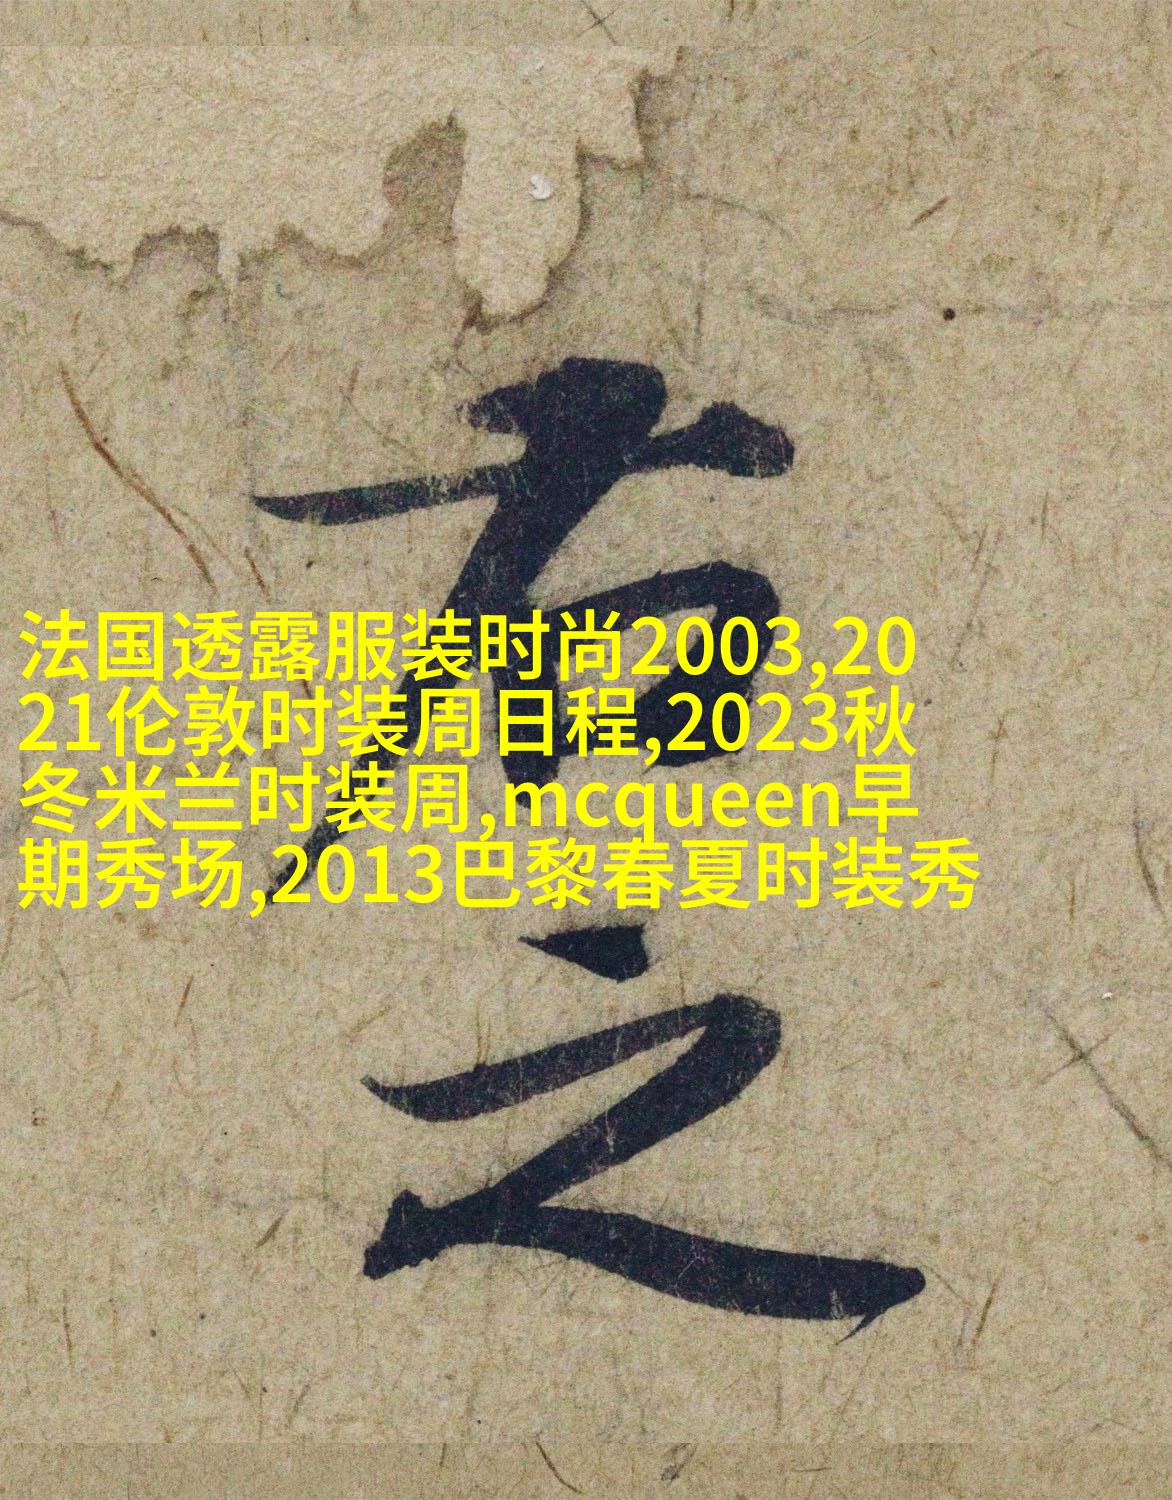 法国透露服装时尚2003,20
21伦敦时装周日程,2023秋
冬米兰时装周,mcqueen早
期秀场,2013巴黎春夏时装秀
之